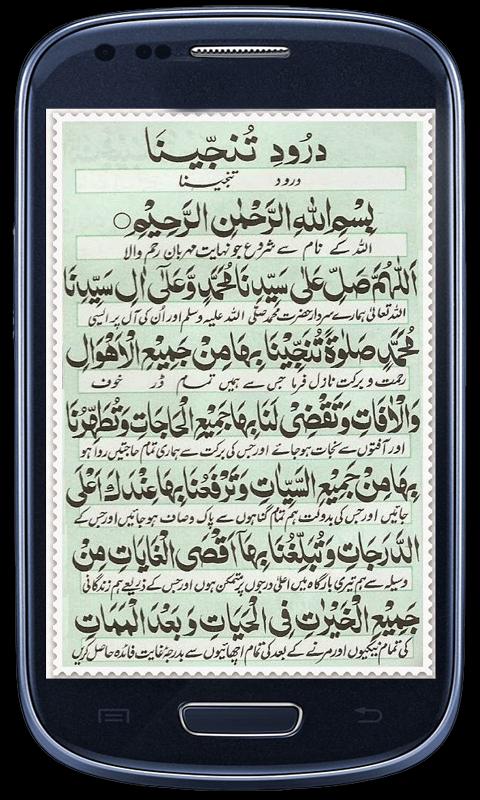 درُودِ تُنَجِّینَا
درود تنجینا
بِسْمِ اللّٰهِ الرَّحْمٰنِ الرَّحِیْمِ○
اللہ کے نام سے شروع جو نہایت مہربان رحم والا
اَللّٰهُمَّ صَلِّ عَلٰی سَیِّدِنَا مُحَمَّدٍ وَّعَلٰٓی اٰلِ سَیِّدِنَا
اللہ تعالیٰ ہمارے سردار حضرت محمد صلی اللہ علیہ وسلم اور اُن کی آل پر ایسی
مُحَمَّدٍ صَلٰوةً تُنَجِّیْنَا بِهَا مِنْ جَمِیْعِ الْاَهْوَالِ
رحمت و برکت نازل فرما جس سے ہمیں تمام ڈر خوف
وَالْاٰفَاتِ وَتَقْضِیْ لَنَا بِهَا جَمِیْعَ الْحَاجَاتِ وَتُطَهِّرُنَا
اور آفتوں سے نجات ہو جائے اور جس کی برکت سے ہماری تمام حاجتیں روا ہو
بِهَا مِنْ جَمِیْعِ السَّیِّاٰتِ وَتَرْفَعُنَا بِهَا عِنْدَكَ اَعْلَی
جائیں اور جس کی بدولت ہم تمام گناہوں سے پاک و صاف ہو جائیں اور جس کے
الدَّرَجَاتِ وَتُبَلِّغُنَا بِهَا اَقْصَی الْغَایَاتِ مِنْ
وسیلہ سے ہم تیری بارگاہ میں اعلیٰ درجوں پر متمکن ہوں اور جس کے ذریعے ہم زندگانی
جَمِیْعِ الْخَیْرٰتِ فِی الْحَیَاتِ وَ بَعْدَ الْمَمَاتِ
کی تمام نیکیوں اور مرنے کے بعد کی تمام اچھائیوں سے بدرجۂ غایت فائدہ حاصل کریں